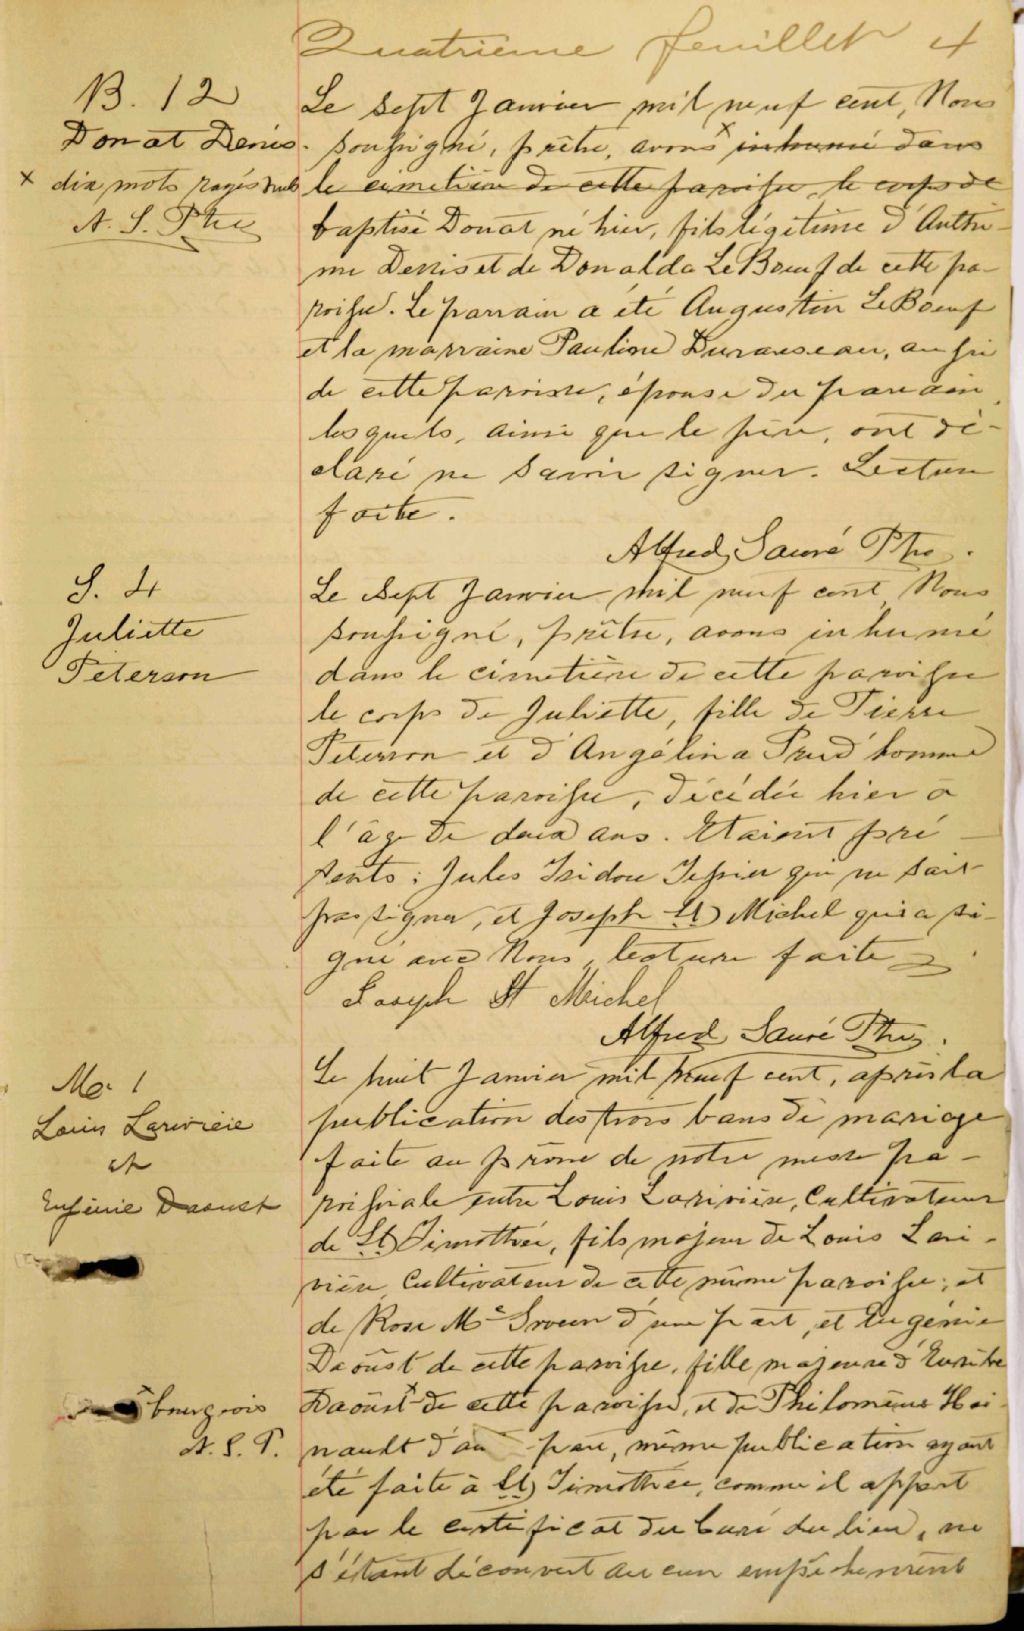 Quatrième feuillet 4
B. 12
Donat Denis
x dix mots rayés nuls
A. S. Ptre
Le sept Janvier mil neuf cent, Nous
soussigné, prêtre, avons x inhumé dans
le cimetière de cette paroisse, le corps de
baptisé Donat né hier, fils légitime d'Anthi-
me Denis et de Donalda LeBoeuf de cette pa-
roisse. Le parrain a été Augustin LeBoeuf
et la marraine Pauline Duranseau, aussi
de cette paroisse, épouse du parrain,
lesquels, ainsi que le père, ont dé-
claré ne savoir signer. Lecture
faite.
Alfred Sauvé Ptre.
S. 4
Juliette
Peterson
Le sept Janvier mil neuf cent, Nous
soussigné, prêtre, avons inhumé
dans le cimetière de cette paroisse
le corps de Juliette, fille de Pierre
Peterson et d'Angélina Prud'homme
de cette paroisse, décédée hier à
l'âge de deux ans. Etaient pré
sents: Jules Isidore Tessier qui ne sait
pas signer, et Joseph St Michel qui a si-
gné avec Nous, lecture faite
Joseph St Michel
Alfred Sauvé Ptre.
M. 1
Louis Larivière
et
Eugénie Daoust
x bourgeois
A. S. P.
Le huit Janvier mil neuf cent, après la
publication des trois bans de mariage
faite au prône de notre messe pa-
roissiale entre Louis Larivière, Cultivateur
de St Timothée, fils majeur de Louis Lari-
vière, Cultivateur de cette même paroisse, et
de Rose McGroun d'une part, et Eugénie
Daoûst de cette paroisse, fille majeure d'Eusèbe
Daoûst x de cette paroisse, et de Philomène Hai-
nault d'au part, même publication ayant
été faite à St Timothée, comme il appert
par le certificat du Curé du lieu, ne
s'étant découvert aucun empêchement